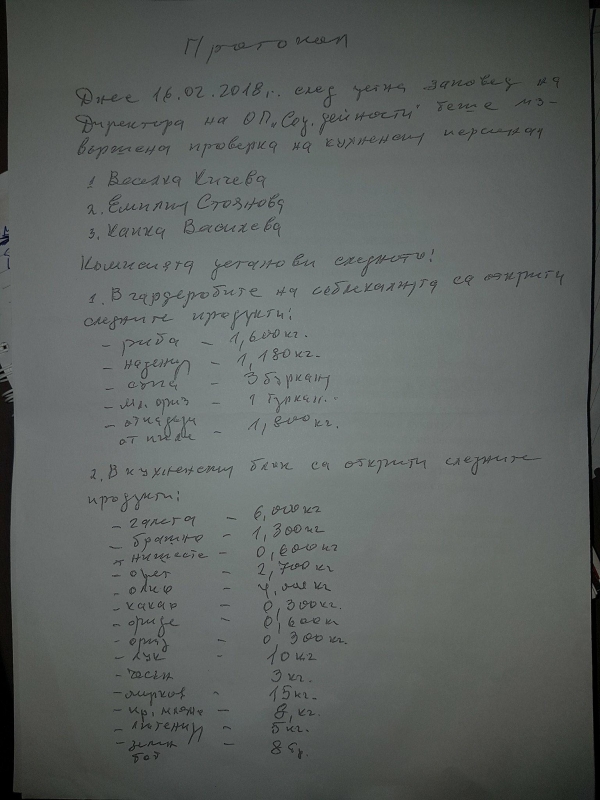 Протокол
Днес 16.02.2018г. след устна заповед на
Директора на ОП "Соц. дейности" беше из-
вършена проверка на кухненски персонал
1. Василка Кичева
2. Емилия Стоянова
3. Канка Василева
Комисията установи следното:
1. В гардеробите на съблекалнята са открити
следните продукти:
- риба - 1,600кг.
- надениц - 1,180кг.
- супа - 3 буркана
- мл. ориз - 1 буркан.
- отпадъци - 1,800кг.
от
2. В кухненския блок са открити следните
продукти:
- галета - 6,000кг
- брашно - 1,300кг
- нишесте - 0,600кг
- оцет - 2,700кг
- олио - 4,000кг
- какао - 0,300кг.
- 0,600кг
- ориз - 0,300кг.
- лук - 10кг
- чесън 3кг.
- моркови - 15кг.
- пр. мляко - 8,кг.
- лютеница - 5кг.
- зелен - 8бр.